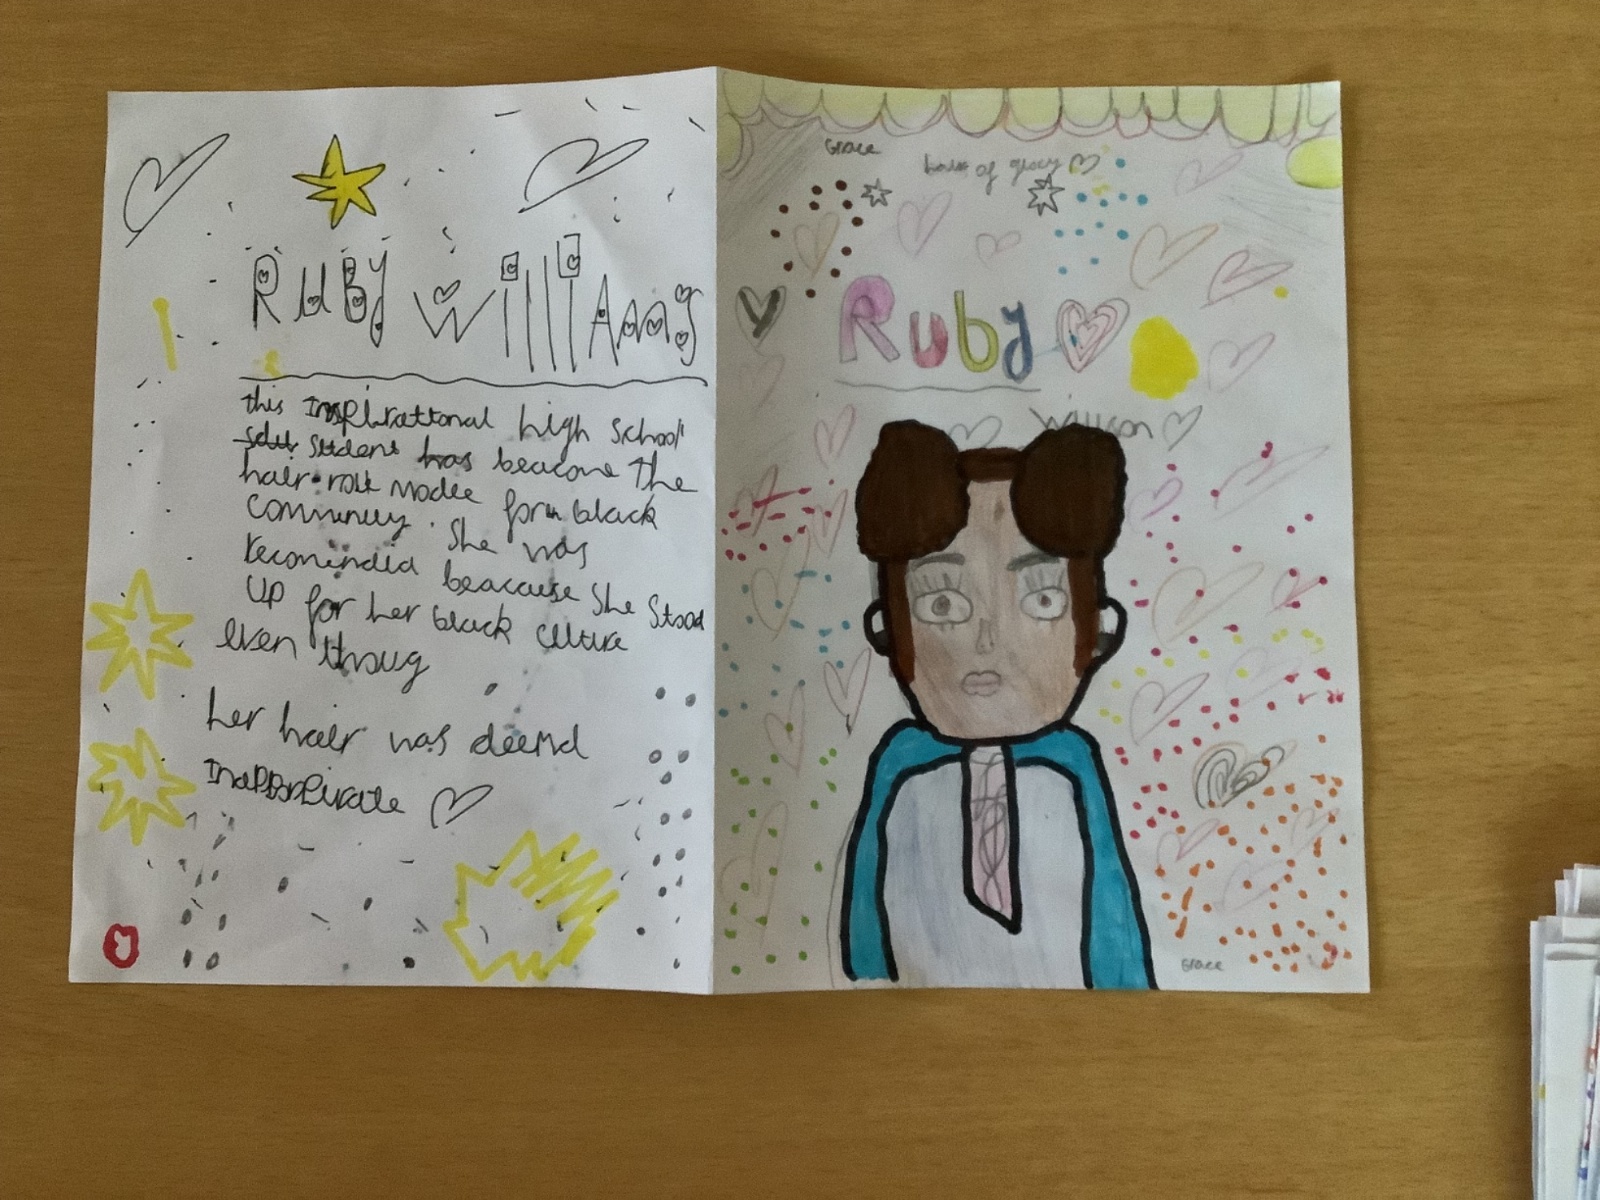 RUBY WillIAmS
this Inspirational high School
Student has beacome the
hair role modle for black
Community. She was
recomindid beaccuse She Stood
up for her black culture
even thoug
her hair was deemd
Grace
Ruby
Willison
Grace